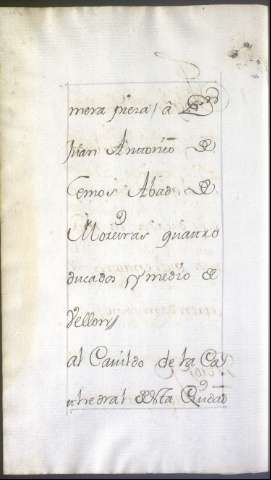 mera pieza / á Dn
Juan Antonio de
Lemos Abad de
Moreiras quatro
ducados y medio de
Vellon
al Cavildo de la Ca
thedral desta Ciudad